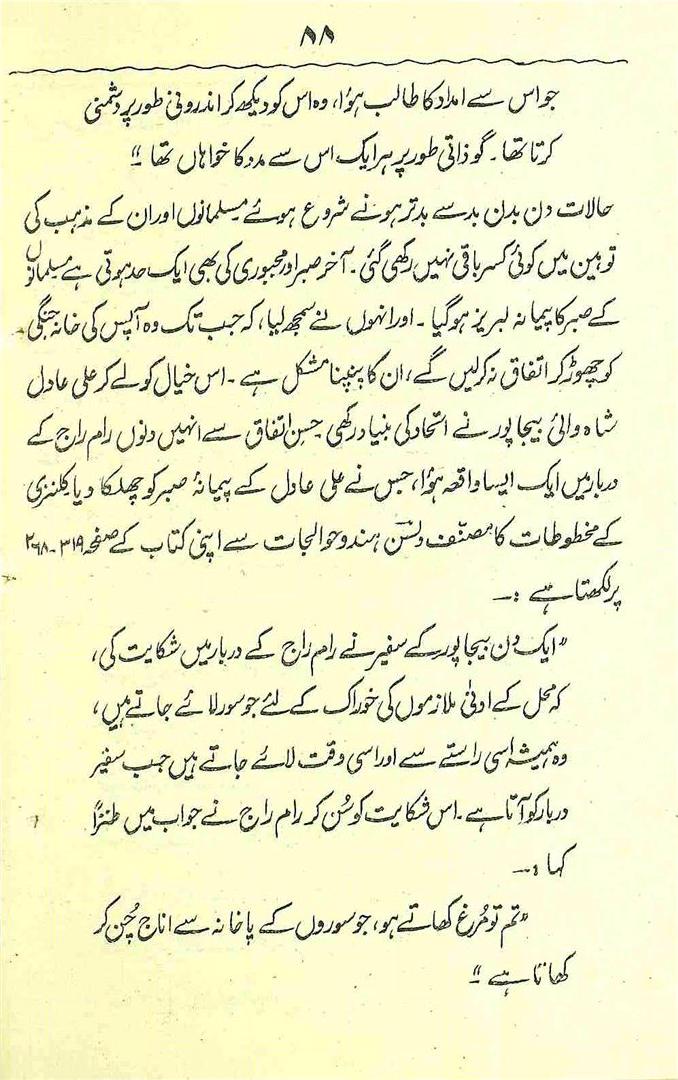 ۸۸
جو اس سے امداد کا طالب ہؤا، وہ اس کو دیکھ کر اندرونی طور پر دشمنی
کرتا تھا۔ گو ذاتی طور پر ہر ایک اس سے مدد کا خواہاں تھا "
حالات دن بدن بد سے بدتر ہونے شروع ہوئے مسلمانوں اور ان کے مذہب کی
توہین میں کوئی کسر باقی نہیں رکھی گئی۔ آخر صبر اور مجبوری کی بھی ایک حد ہوتی ہے مسلمانوں
کے صبر کا پیمانہ لبریز ہو گیا۔ اور انہوں نے سمجھ لیا، کہ جب تک وہ آپس کی خانہ جنگی
کو چھوڑ کر اتفاق نہ کر لیں گے، ان کا پنپنا مشکل ہے۔ اس خیال کو لے کر علی عادل
شاہ والئ بیجاپور نے اتحاد کی بنیاد رکھی حسنِ اتفاق سے انہیں دنوں رام راج کے
دربار میں ایک ایسا واقعہ ہؤا، جس نے علی عادل کے پیمانۂ صبر کو چھلکا دیا میکنزی
کے مخطوطات کا مصنّف ولسن ہندو حوالجات سے اپنی کتاب کے صفحہ ۳۱۹-۲۶۸
پر لکھتا ہے :۔
"ایک دن بیجاپور کے سفیر نے رام راج کے دربار میں شکایت کی،
کہ محل کے ادنیٰ ملازموں کی خوراک کے لئے جو سور لائے جاتے ہیں،
وہ ہمیشہ اسی راستے سے اور اسی وقت لائے جاتے ہیں جب سفیر
دربار کو آتا ہے۔ اس شکایت کو سُن کر رام راج نے جواب میں طنزاً
کہا :۔
"تم تو مُرغ کھاتے ہو، جو سوروں کے پاخانہ سے اناج چُن کر
کھاتا ہے "